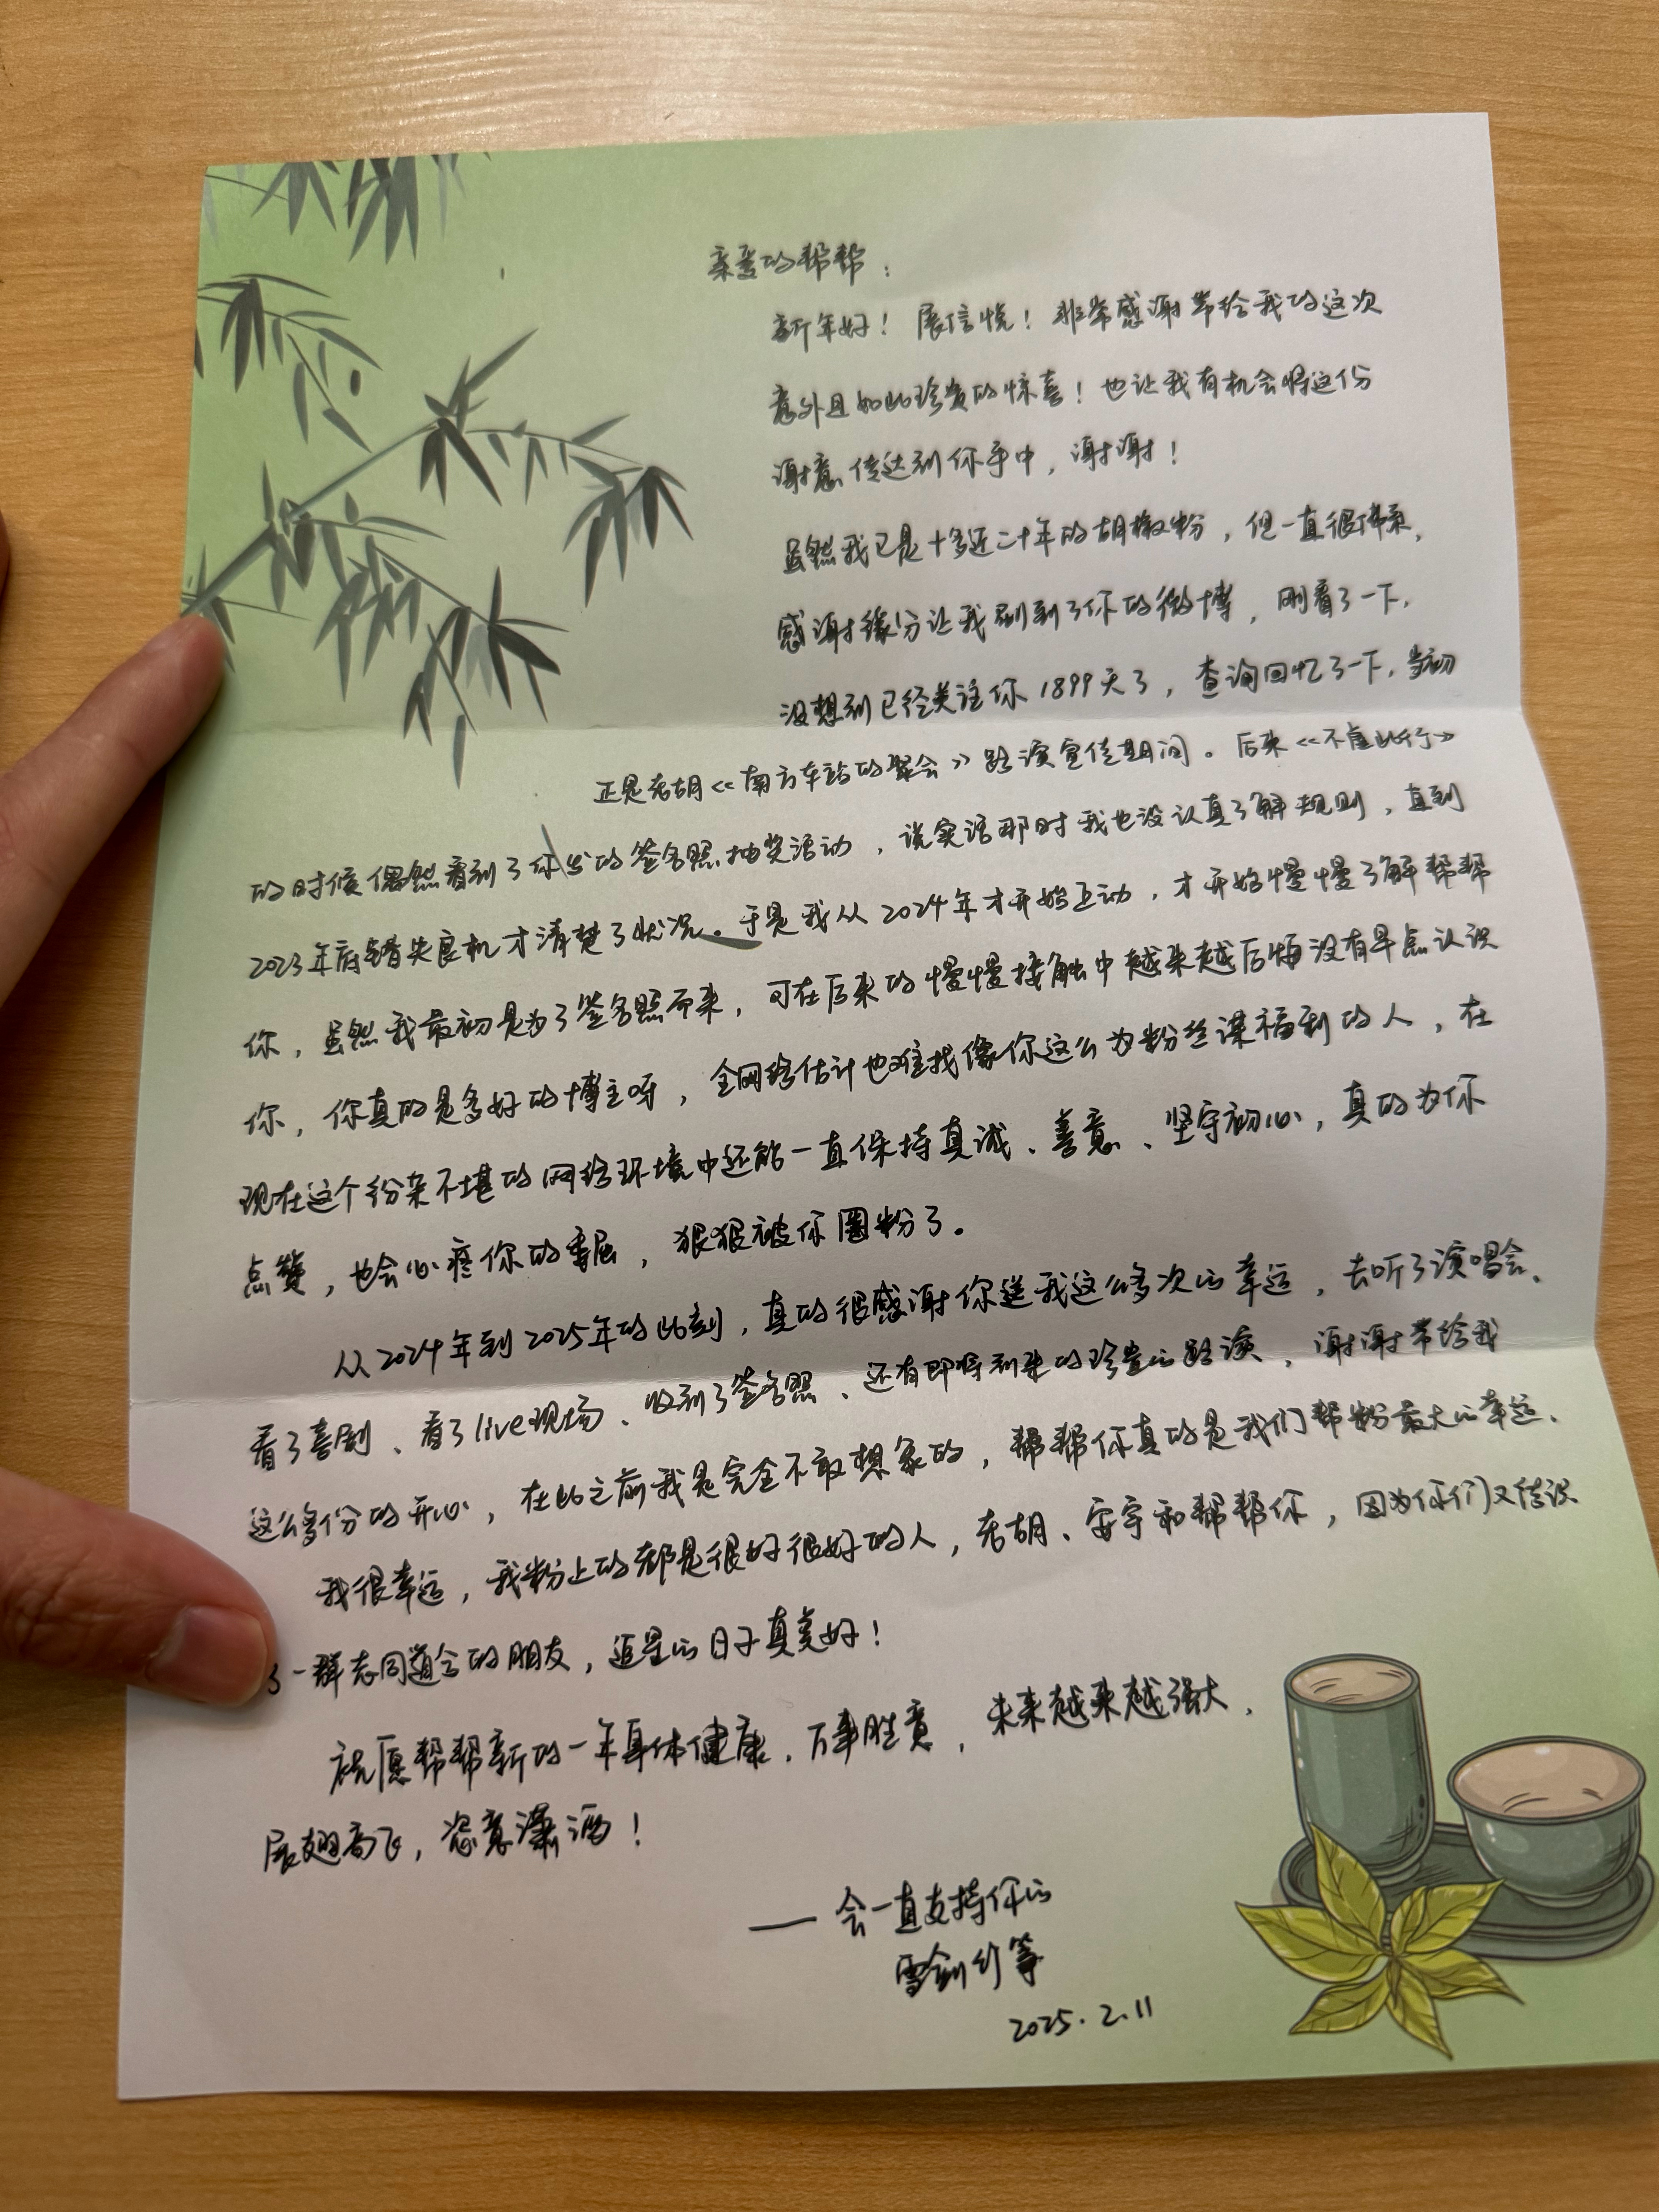 亲爱的帮帮：
新年好！展信悦！非常感谢带给我的这次
意外且如此珍贵的惊喜！也让我有机会将这份
谢意传达到你手中，谢谢！
虽然我已是十多近二十年的胡椒粉，但一直很佛系，
感谢缘分让我刷到了你的微博，刚看了一下，
没想到已经关注你1899天了，查询回忆了一下，当初
正是老胡《南方车站的聚会》路演宣传期间。后来《不虚此行》
的时候偶然看到了你发的签名照抽奖活动，说实话那时我也没认真了解规则，直到
2023年底错失良机才清楚了状况。于是我从2024年才开始互动，才开始慢慢了解帮帮
你，虽然我最初是为了签名照而来，可在后来的慢慢接触中越来越后悔没有早点认识
你，你真的是多好的博主呀，全网络估计也难找像你这么为粉丝谋福利的人，在
现在这个纷杂不堪的网络环境中还能一直保持真诚、善意、坚守初心，真的为你
点赞，也会心疼你的委屈，狠狠被你圈粉了。
从2024年到2025年的此刻，真的很感谢你送我这么多次的幸运，去听了演唱会、
看了喜剧、看了live现场、收到了签名照、还有即将到来的珍贵的路演，谢谢带给我
这么多份的开心，在此之前我是完全不敢想象的，帮帮你真的是我们帮粉最大的幸运。
我很幸运，我粉上的都是很好很好的人，老胡、安宇和帮帮你，因为你们又结识
了一群志同道合的朋友，追星的日子真美好！
祝愿帮帮新的一年身体健康，万事胜意，未来越来越强大，
展翅高飞，恣意潇洒！
——会一直支持你的
雪剑竹筝
2025.2.11